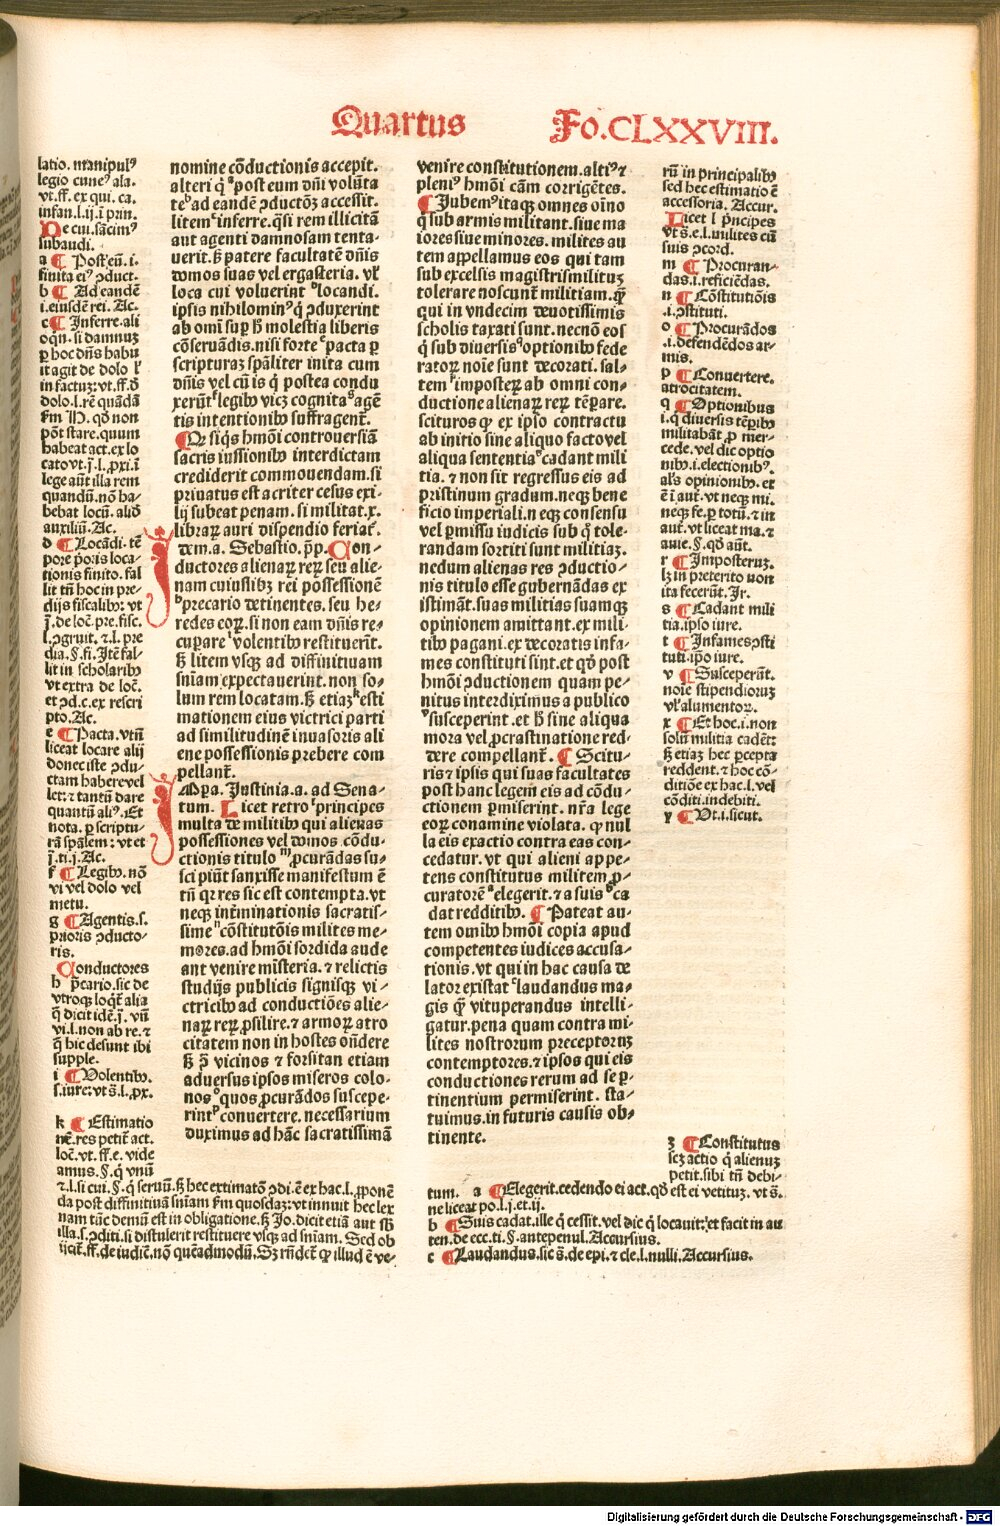 Quartus Fo.CLXXVIII.
latio. manipulꝰ
legio cuneꝰ ala.
vt.ff. ex qui. ca.
infan.l.ij.ī prin.
De cui.sācimꝰ
subaudi.
a ¶ Post eū.i.
finita eiꝰ ↄduct.
b ¶ Ad eandē
i.eiusdē rei. Ac.
c ¶ Inferre.ali
oqn̄.si damnuz
ꝑ hoc dn̄s habu
it agit de dolo ł
in factuz:vt.ff.ď
dolo.l.rē quādā
fm M. qď non
pōt stare.quum
habeat act.ex lo
cato vt.j.l.ꝓxi.ī
lege aūt illa rem
quandū.nō ha/
bebat locū. aliď
auxiliū.Ac.
d ¶ Locādi. tē
pore p̄oris loca/
tionis finito. fal
lit tn̄ hoc in pre/
dijs fiscalibꝰ: vt
j.de loc̄.pre.fisc.
l.ↄgruit. ⁊.l. pre
dia.§.fi. Itē fal/
lit in scholaribꝰ
vt extra de loc̄.
et ↄd.c.ex rescri
pto.Ac.
e ¶ Pacta.vtū
liceat locare alij
donec iste ↄdu/
ctam habere vel
let: ⁊ tantū dare
quantū aliꝰ. Et
nota. ꝑ scriptu/
rā spālem: vt et
j.ti.j.Ac.
f ¶ Legibꝰ. nō
vi vel dolo vel
metu.
g ¶ Agentis.s.
prioris ↄducto/
ris.
Conductores
h p̄cario.sic de
vtroqꝫ loqt̄ alia
q̄ dicit idē.j. vn̄
vi.l.non ab re.⁊
q̄ hic desunt ibi
supple.
i ¶ Volentibꝰ.
s.iure:vt s̄.l.ꝓx.
k ¶ Estimatio
nē.res petit act.
loc̄.vt.ff.e. vide
amus.§.q̄ vnū
⁊.l.si cui.§.q̄ seruū.ß hec extimatō ↄdi.ē ex hac.l.ꝓponē
da post diffinitiuā sn̄iam fm quosdaz:vt innuit hec lex
nam tūc demū est in obligatione.ß Jo.dicit etiā aut sb̄
illa.s.ↄditi.si distulerit restituere vsqꝫ ad sn̄iam. Sed ob
ijcit̄.ff.de iudic̄.nō quēadmodū.Sꝫ rn̄dct̄ ꝙ illud ē ve/
nomine cōductionis accepit.
alteri q̄ ᵃpost eum dn̄i volūta
teᵇ ad eandē ↄductōꝫ accessit.
litem ᶜinferre.q̄si rem illicitā
aut agenti damnosam tenta-
uerit.ß patere facultatē dn̄is
domos suas vel ergasteria. vł
loca cui voluerint ᵈlocandi.
ipsis nihilominꝰ q̄ ↄduxerint
ab om̄i suꝑ ḣ molestia liberis
cōseruādis.nisi forte ᵉpacta ꝑ
scripturaꝫ sp̄aliter inita cum
dn̄is vel cū is q̄ postea condu
xerūt ᶠlegibꝰ vicꝫ cognita ᵍagē
tis intentionibꝰ suffragent̄.
¶ Qꝫ si q̄s hmōi controuersiā
sacris iussionibꝰ interdictam
crediderit commouendam.si
priuatus est acriter cesus exi-
lij subeat penam.si militat.x.
libraꝝ auri dispendio feriat̄.
Idem.a. Sebastio. p̄p. Con-
ductores alienaꝝ reꝝ seu alie-
nam cuiuslibꝫ rei possessionē
ʰprecario detinentes. seu he-
redes eoꝝ. si non eam dn̄is re-
cuꝑare ⁱvolentibꝰ restituerīt.
ß litem vsqꝫ ad diffinituam
sn̄iam expectauerint. non so-
lum rem locatam.ß etiaꝫ ᵏesti
mationem eius victrici parti
ad similitudinē inuasoris ali
ene possessionis prebere com
pellant̄.
Impa. Justinia.a. ad Sena-
tum. Licet retro ˡprincipes
multa de militibꝰ qui alienas
possessiones vel domos cōdu-
ctionis titulo ᵐꝓcurādas su-
sci piūt sanxisse manifestum ē
tn̄ qꝛ res sic est contempta. vt
neqꝫ int̄minationis sacratis-
sime ⁿcōstitutōis milites me-
mores.ad hmōi sordida aude
ant venire mīsteria. ⁊ relictis
studijs publicis signisqꝫ vi-
ctricibꝰ ad conductiōes alie-
naꝝ reꝝ ꝓsilire.⁊ armoꝝ atro
citatem non in hostes on̄dere
ß p̄ vicinos ⁊ forsitan etiam
aduersus ipsos miseros colo-
nos ᵒquos ꝓcurādos suscepe-
rint ᵖconuertere. necessarium
duximus ad hāc sacratissimā
venire constitutionem.altiꝰ⁊
pleniꝰ hmōi cām corrigētes.
¶ Jubemꝰ itaqꝫ omnes oīno
q̄ sub armis militant.siue ma
iores siue minores. milites au
tem appellamus eos qui tam
sub excelsis magistris militūꝫ
tolerare noscunt̄ militiam.q̄ꝫ
qui in vndecim deuotissimis
scholis taxati sunt.necnō eos
q̄ sub diuersis ᑫoptionibꝰ fede
ratoꝝ noīe sunt decorati. sal-
tem ʳimposteꝝ ab omni con-
ductione alienaꝝ reꝝ tēꝑare.
scituros ꝙ ex ipso contractu
ab initio sine aliquo facto vel
aliqua sententia ˢcadant mili
tia. ⁊ non sit regressus eis ad
pristinum gradum.neqꝫ bene
ficio imperiali.n eqꝫ consensu
vel ꝑmissu iudicis sub q̄ tole-
randam sortiti sunt militiaꝫ.
nedum alienas res ↄductio-
nis titulo esse gubernādas ex
istimāt.suas militias suamqꝫ
opinionem amittant.ex mili-
tibꝰ pagani.ex decoratis infa-
mes constituti sint.et qď post
hmōi ↄductionem quam pe-
nitus interdiximus a publico
ᵛsusceperint .et ḣ sine aliqua
mora vel ꝓcrastinatione red-
dere compellant̄. ¶ Scitu-
ris ⁊ ipsis qui suas facultates
post hanc legem eis ad cōdu-
ctionem ꝑmiserint. nr̄a lege
eoꝝ conamine violata. ꝙ nul
la eis exactio contra eas con-
cedatur. vt qui alieni appe-
tens constitutus militem ꝓ-
curatorē ᵃelegerit.⁊ a suis ᵇca
dat redditibꝰ. ¶ Pateat au-
tem omībꝰ hmōi copia apud
competentes iudices accusa-
tionis. vt qui in hac causa de
lator existat ᶜlaudandus ma-
gis q̄ꝫ vituperandus intelli-
gatur.pena quam contra mi-
lites nostrorum preceptorūꝫ
contemptores.⁊ ipsos qui eis
conductiones rerum ad se ꝑ-
tinentium permiserint. sta-
tuimus.in futuris causis ob-
tinente.
rū in principalibꝰ
sed hec estimatio ē
accessoria. Accur.
Licet l p̄ncipes
vt s̄.e.l.milites cū
suis ↄcord.
m ¶ Procuran/
das.i.reficiēdas.
n ¶ Cōstitutiōis
.i.ↄstituti.
o ¶ Procurādos
.i.defendēdos ar/
mis.
p ¶ Conuertere.
atrocitatem.
q ¶ Optionibus
l.q̄ diuersis tēꝑibꝰ
militabāt ꝓ mer/
cede. vel dic optio
nibꝰ.i.electionibꝰ.
al's opinionibꝰ. et
ē ī aut̄. vt neqꝫ mi.
neqꝫ fe.ꝑ totū.⁊ in
aut̄. vt liceat ma.⁊
auie.§.qď aūt.
r ¶ Imposteruꝫ.
lꝫ in preterito non
ita fecerūt. Jr.
s ¶ Cadant mili
tia.ipso iure.
t ¶ Infames ↄsti
tuti.ip̄o iure.
v ¶ Susceperūt.
noīe stipendioruꝫ
vł alimentoꝝ.
x ¶ Et hoc.i.non
solū militia cadēt:
ß etiaꝫ hec ꝑcepta
reddent.⁊ hoc cō/
ditiōe ex hac.l. vel
cōditi.indebiti.
y ¶ Vt.i.sicut.
ꝫ ¶ Constitutus
scꝫ actio q̄ alienuꝫ
petit.sibi tn̄ debi/
tum. a ¶ Elegerit.cedendo ei act.qď est ei vetituꝫ. vt s̄.
ne liceat po.l.j.et.ij.
b ¶ Suis cadat.ille q̄ cessit.vel dic q̄ locauit:et facit in au
ten.de ecc.ti.§.antepenul.Accursius.
c ¶ Laudandus.sic s̄.de epi.⁊ cle.l.nulli.Accursius.
Digitalisierung gefördert durch die Deutsche Forschungsgemeinschaft - DFG